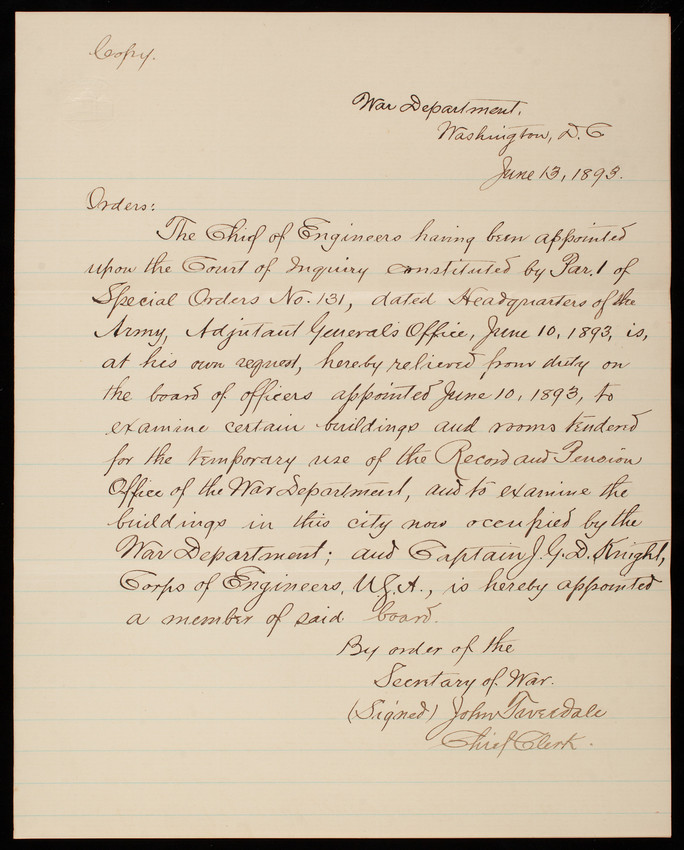 Copy.
War Department,
Washington, D. C
June 13, 1893.
Orders:
The Chief of Engineers having been appointed
upon the Court of Inquiry constituted by Par. 1 of
Special Orders No. 131, dated Headquarters of the
Army, Adjutant General's Office, June 10, 1893, is,
at his own request, hereby relieved from duty on
the board of officers appointed June 10, 1893, to
examine certain buildings and rooms tendered
for the temporary use of the Record and Pension
Office of the War Department, and to examine the
buildings in this city now occupied by the
War Department; and Captain J. G. D. Knight,
Corps of Engineers, U.S.A., is hereby appointed
a member of said board.
By order of the
Secretary of War.
(Signed) John Tweedale
Chief Clerk.